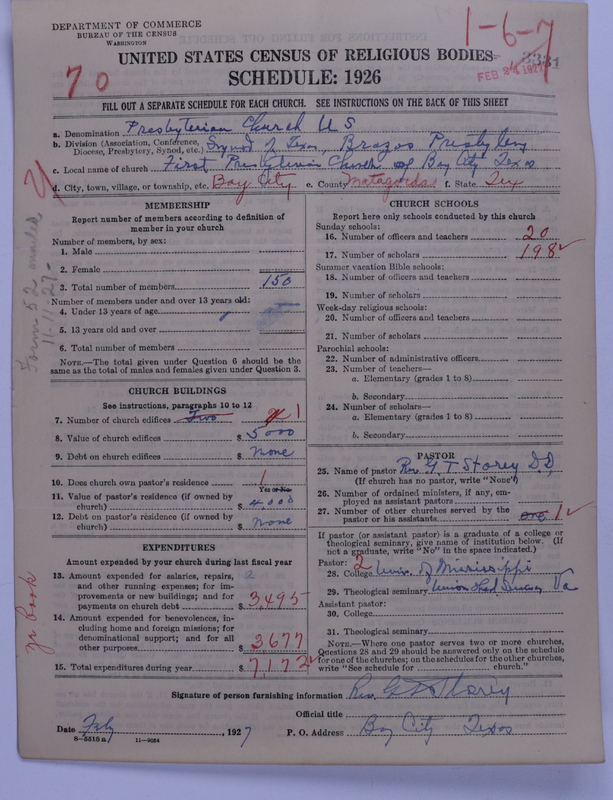 DEPARTMENT OF COMMERCE
BUREAU OF THE CENSUS
WASHINGTON
1-6-7
UNITED STATES CENSUS OF RELIGIOUS BODIES
3331
FEB 24 1927
70
SCHEDULE: 1926
FILL OUT A SEPARATE SCHEDULE FOR EACH CHURCH. SEE INSTRUCTIONS ON THE BACK OF THIS SHEET
a. Denomination Presbyterian Church U S
b. Division (Association, Conference, Diocese, Presbytery, Synod, etc.) Synod of Texas, Brazos Presbytery
c. Local name of church First Presbyterian Church of Bay City Texas
d. City, town, village, or township, etc. Bay City e. County Matagorda f. State Tex
MEMBERSHIP
Report number of members according to definition of
member in your church
Number of members, by sex:
1. Male
2. Female
3. Total number of members 150
Number of members under and over 13 years old:
4. Under 13 years of age
5. 13 years old and over
6. Total number of members
NOTE.—The total given under Question 6 should be the
same as the total of males and females given under Question 3.
Form 52 mailed
11-11-27-
CHURCH BUILDINGS
See instructions, paragraphs 10 to 12
7. Number of church edifices Two 1
8. Value of church edifices $ 5000
9. Debt on church edifices $ none
10. Does church own pastor's residence 1
Yes or No
11. Value of pastor's residence (if owned by
church) $ 4,000
12. Debt on pastor's residence (if owned by
church) $ none
EXPENDITURES
Amount expended by your church during last fiscal year
13. Amount expended for salaries, repairs,
and other running expenses; for im-
provements or new building; and for
payments on church debt $ 3,495
14. Amount expended for benevolences, in-
cluding home and foreign missions; for
denominational support; and for all
other purposes $ 3677
15. Total expenditures during year $ 7,172
yr book
CHURCH SCHOOLS
Report here only schools conducted by this church
Sunday schools:
16. Number of officers and teachers 20
17. Number of scholars 198
Summer vacation Bible schools:
18. Number of officers and teachers
19. Number of scholars
Week-day religious schools:
20. Number of officers and teachers
21. Number of scholars
Parochial schools:
22. Number of administrative officers
23. Number of teachers—
a. Elementary (grades 1 to 8)
b. Secondary
24. Number of scholars—
a. Elementary (grades 1 to 8)
b. Secondary
PASTOR
25. Name of pastor Rev. G. T. Storey D.D.
(If church has no pastor, write "None")
26. Number of ordained ministers, if any, em-
ployed as assistant pastors
27. Number of other churches served by the
pastor or his assistants one 1
If pastor (or assistant pastor) is a graduate of a college or
theological seminary, give name of institution below. (If
not a graduate, write "No" in the space indicated.)
Pastor: 2
28. College Univ. of Mississippi
29. Theological seminary Union Va
Assistant pastor:
30. College
31. Theological seminary
NOTE.—Where one pastor serves two or more churches,
Questions 28 and 29 should be answered only on the schedule
for one of the churches; on the schedules for the other churches,
write "See schedule for church."
Signature of person furnishing information Rev. G T Storey
Official title
Date Feb , 1927 P. O. Address Bay City Texas
8-5518 a 11-9034